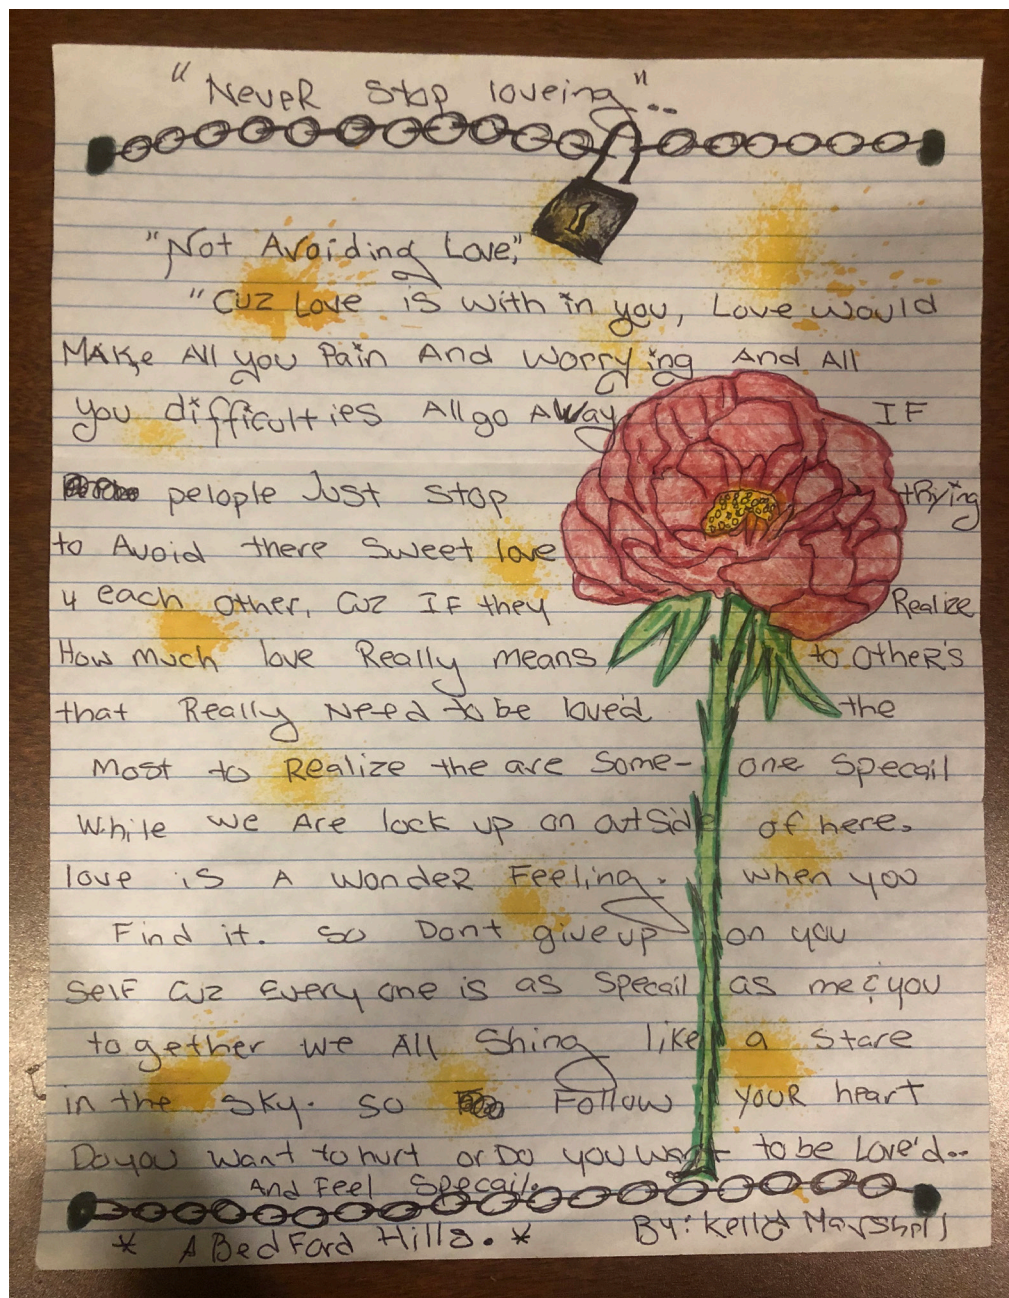 "Never Stop loveing"..
"Not Avoiding Love,"
"Cuz Love is with in you, Love would
Make All you Pain And worrying And All
you difficulties All go Away IF
pelople Just Stop trying
to Avoid there Sweet love
4 each other, Cuz IF they Realize
How much love Really means to other's
that Really Need to be loved the
Most to Realize the are Some- one Specail
While we Are lock up on outside of here.
love is A wonder Feeling. when you
Find it. So Dont give up on you
Self Cuz Every one is as Specail as me & you
together we All Shing like a Stare
in the Sky. So Follow your heart
Do you Want to hurt or Do you want to be Love'd..
And Feel Specail.
* A Bedford Hills. * By: Kelly Marshell